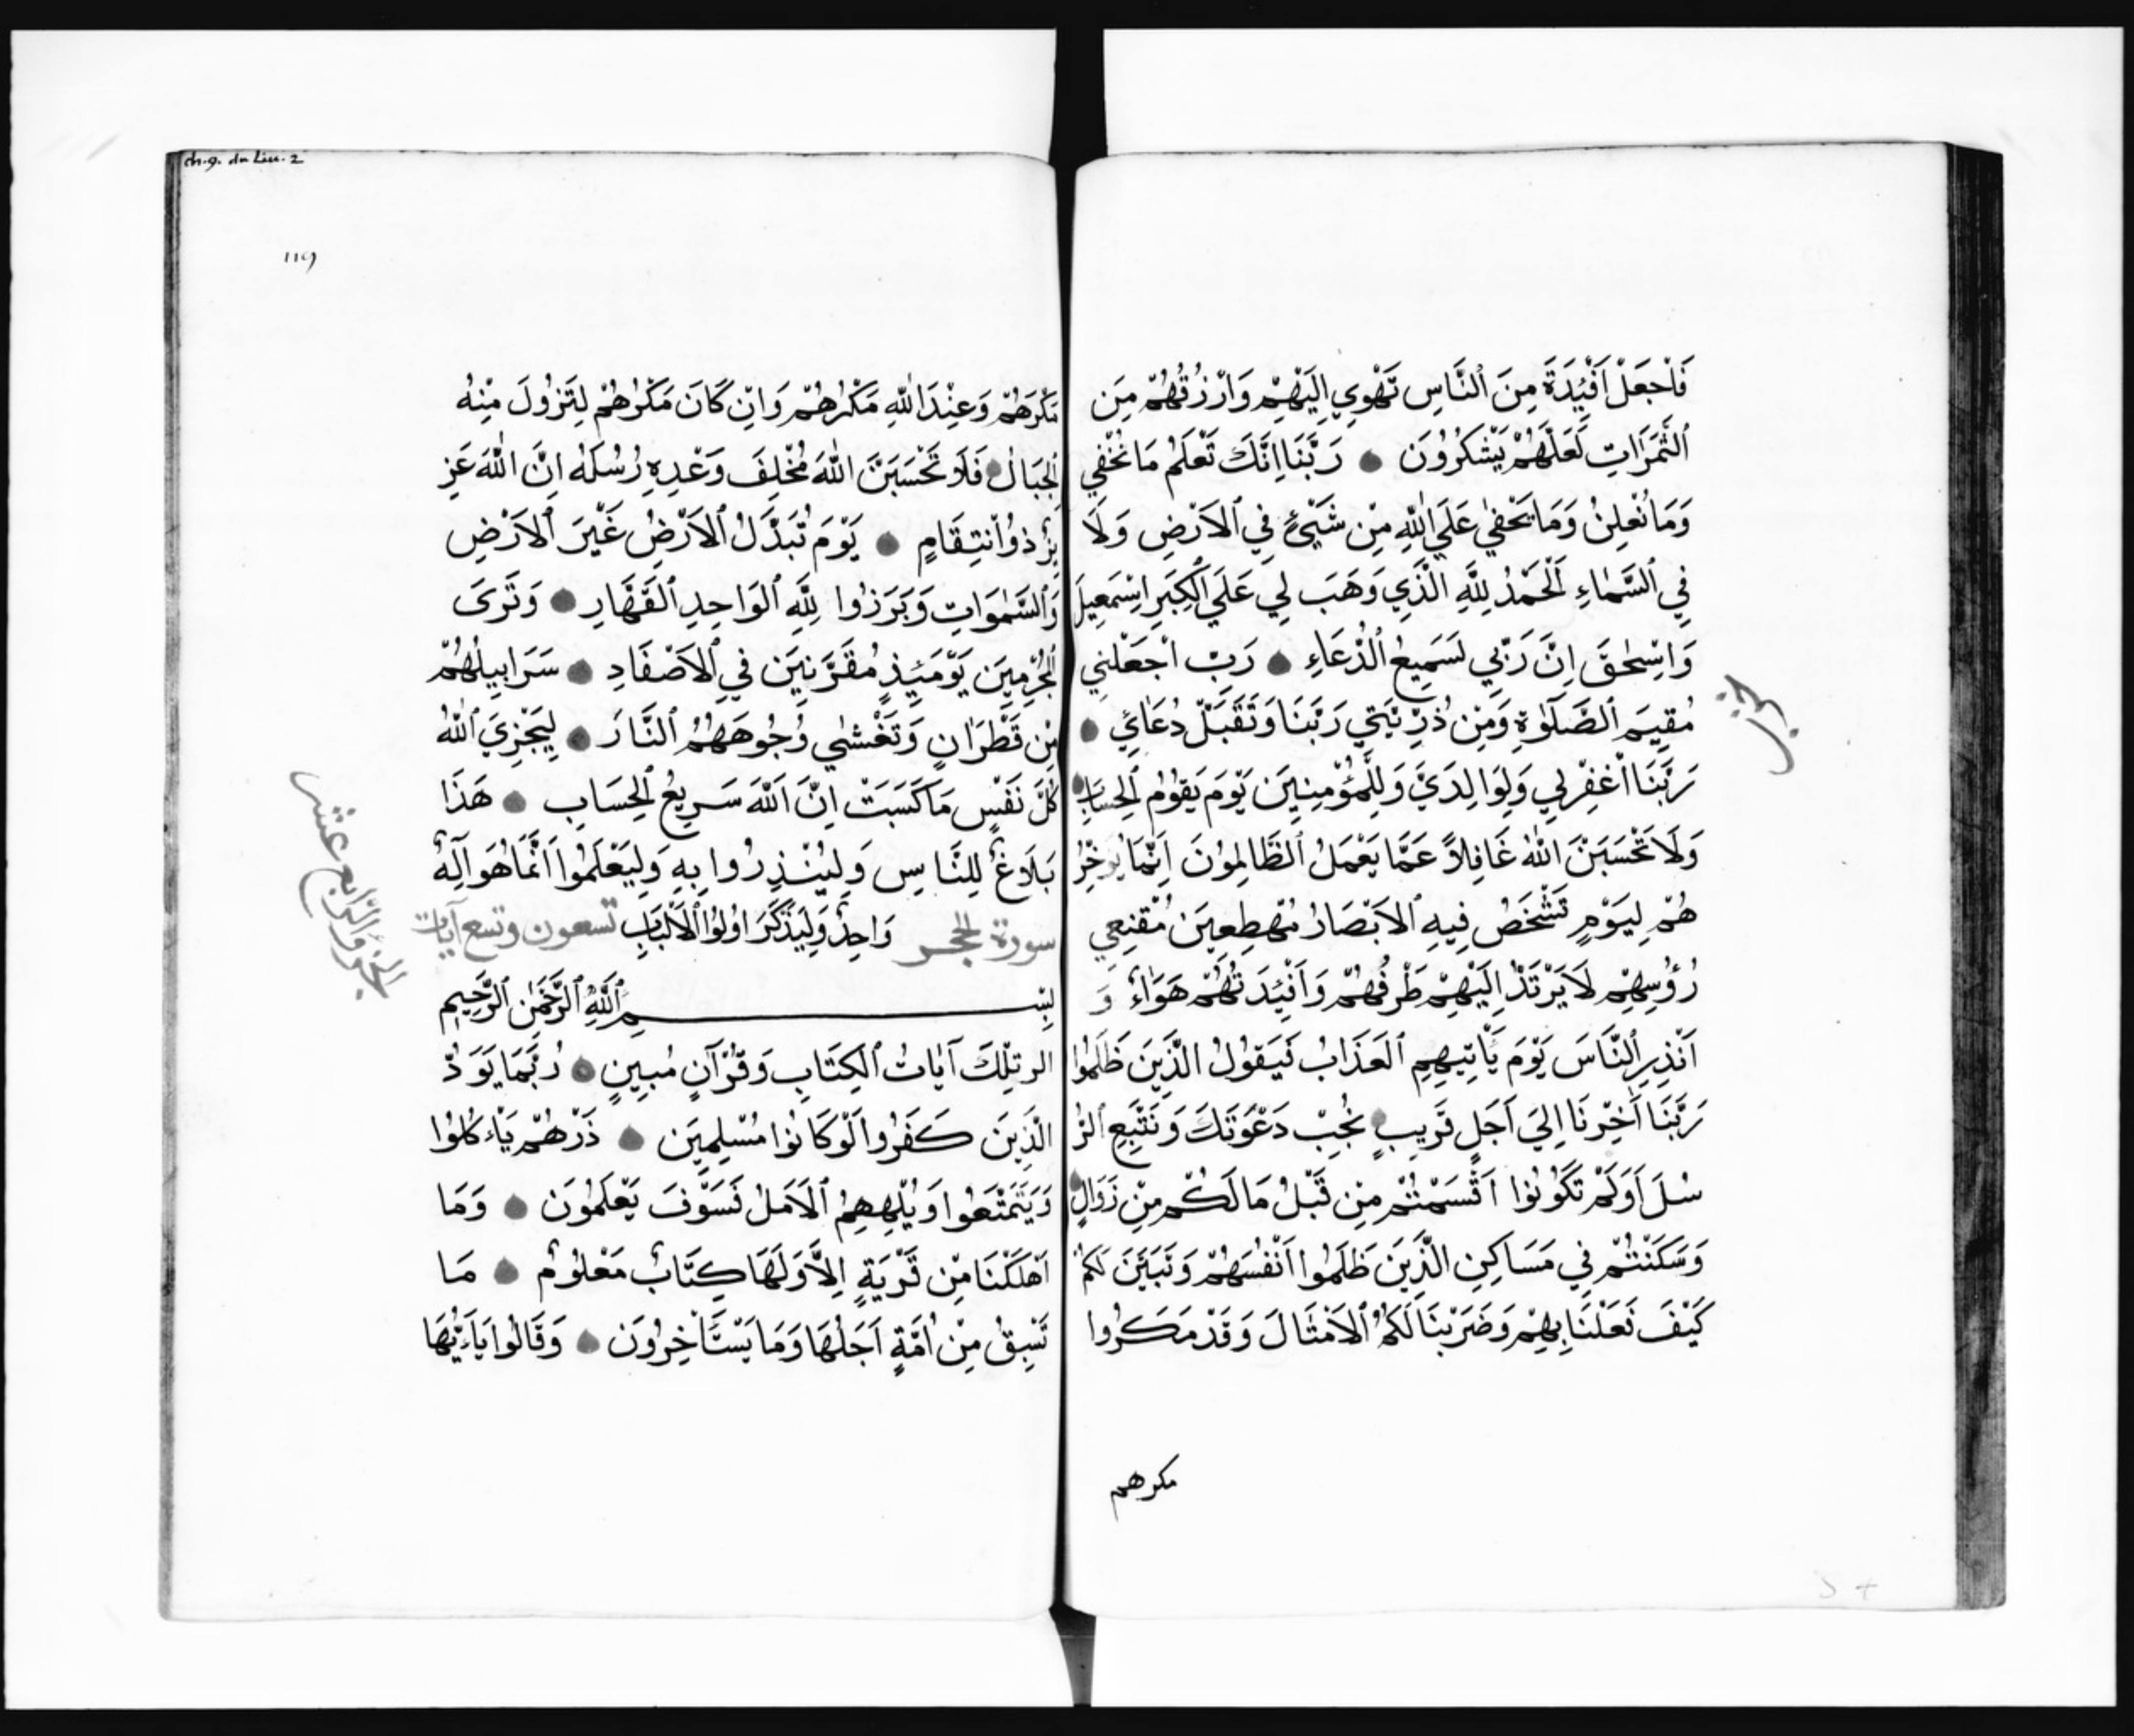 فَاجْعَلْ اَفْئِدَةً مِنَ النَّاسِ تَهْوِي اِلَيْهِمْ وَارْزُقْهُمْ مِنَ
الثَّمَرَاتِ لَعَلَّهُمْ يَشْكُرُونَ رَبَّنَا اِنَّكَ تَعْلَمُ مَا نُخْفِي
وَمَا نُعْلِنُ وَمَا يَخْفٰي عَلَي اللّٰهِ مِنْ شَيْئٍ فِي الْاَرْضِ وَلَا
فِي السَّمَاءِ اَلْحَمْدُ لِلّٰهِ الَّذِي وَهَبَ لِي عَلَي الْكِبَرِ اِسْمٰعِيلَ
وَاِسْحٰقَ اِنَّ رَبِّي لَسَمِيعُ الدُّعَاءِ رَبِّ اجْعَلْنِي
مُقِيمَ الصَّلٰوةِ وَمِنْ ذُرِّيَّتِي رَبَّنَا وَتَقَبَّلْ دُعَائِي
الحزب
رَبَّنَا اغْفِرْ لِي وَلِوَالِدَيَّ وَلِلْمُؤْمِنِينَ يَوْمَ يَقُومُ الْحِسَابُ
وَلَا تَحْسَبَنَّ اللّٰهَ غَافِلاً عَمَّا يَعْمَلُ الظَّالِمُونَ اِنَّمَا يُوَخِّرُ
هُمْ لِيَوْمٍ تَشْخَصُ فِيهِ الْاَبْصَارُ مُهْطِعِينَ مُقْنِعِي
رُؤُسِهِمْ لَا يَرْتَدُّ اِلَيْهِمْ طَرْفُهُمْ وَاَفْئِدَتُهُمْ هَوَاءٌ وَ
اَنْذِرِ النَّاسَ يَوْمَ يَأْتِيهِمِ الْعَذَابُ فَيَقُولُ الَّذِينَ ظَلَمُوا
رَبَّنَا اَخِّرْنَا اِلَي اَجَلٍ قَرِيبٍ نُجِبْ دَعْوَتَكَ وَنَتَّبِعِ الرُّ
سُلَ اَوَلَمْ تَكُونُوا اَقْسَمْتُمْ مِنْ قَبْلُ مَا لَكُمْ مِنْ زَوَالٍ
وَسَكَنْتُمْ فِي مَسَاكِنِ الَّذِينَ ظَلَمُوا اَنْفُسَهُمْ وَتَبَيَّنَ لَكُمْ
كَيْفَ فَعَلْنَا بِهِمْ وَضَرَبْنَا لَكُمُ الْاَمْثَالَ وَقَدْ مَكَرُوا
مكرهم
ch. 9. du Liu. 2
119
مَكْرَهُمْ وَعِنْدَ اللّٰهِ مَكْرُهُمْ وَاِنْ كَانَ مَكْرُهُمْ لِتَزُولَ مِنْهُ
الْجِبَالُ فَلَا تَحْسَبَنَّ اللّٰهَ مُخْلِفَ وَعْدِهِ رُسُلَهُ اِنَّ اللّٰهَ عَزِ
يزٌ ذُو انْتِقَامٍ يَوْمَ تُبَدَّلُ الْاَرْضُ غَيْرَ الْاَرْضِ
وَالسَّمٰوَاتِ وَبَرَزُوا لِلّٰهِ الْوَاحِدِ الْقَهَّارِ وَتَرَى
الْمُجْرِمِينَ يَوْمَئِذٍ مُقَرَّنِينَ فِي الْاَصْفَادِ سَرَابِيلُهُمْ
مِنْ قَطْرَانٍ وَتَغْشٰي وُجُوهَهُمُ النَّارَ لِيَجْزِيَ اللّٰهُ
كُلَّ نَفْسٍ مَا كَسَبَتْ اِنَّ اللّٰهَ سَرِيعُ الْحِسَابِ هَذَا
بَلَاغٌ لِلنَّاسِ وَلِيُنْذِرُوا بِهِ وَلِيَعْلَمُوا اَنَّمَا هُوَ اَلِهٌ
وَاحِدٌ وَلِيَذَّكَّرَ اوُلُوا الْاَلْبَابِ
سورة الحجر تسعون وتسع آيات
الجزو الرابع عشر
بِسْمِ اللّٰهِ الرَّحْمٰنِ الرَّحِيمِ
الر تِلْكَ آيَاتُ الْكِتَابِ وَقُرْآنٍ مُبِينٍ رُبَّمَا يَوَدُّ
الَّذِينَ كَفَرُوا لَوْ كَانُوا مُسْلِمِينَ ذَرْهُمْ يَاْءكُلُوا
وَيَتَمَتَّعُوا وَيُلْهِهِمُ الْاَمَلُ فَسَوْفَ يَعْلَمُونَ وَمَا
اَهْلَكْنَا مِنْ قَرْيَةٍ اِلَّا وَلَهَا كِتَابٌ مَعْلُومٌ مَا
تَسْبِقُ مِنْ اُمَّةٍ اَجَلَهَا وَمَا يَسْتَأْخِرُونَ وَقَالُوا يَاءَيُّهَا